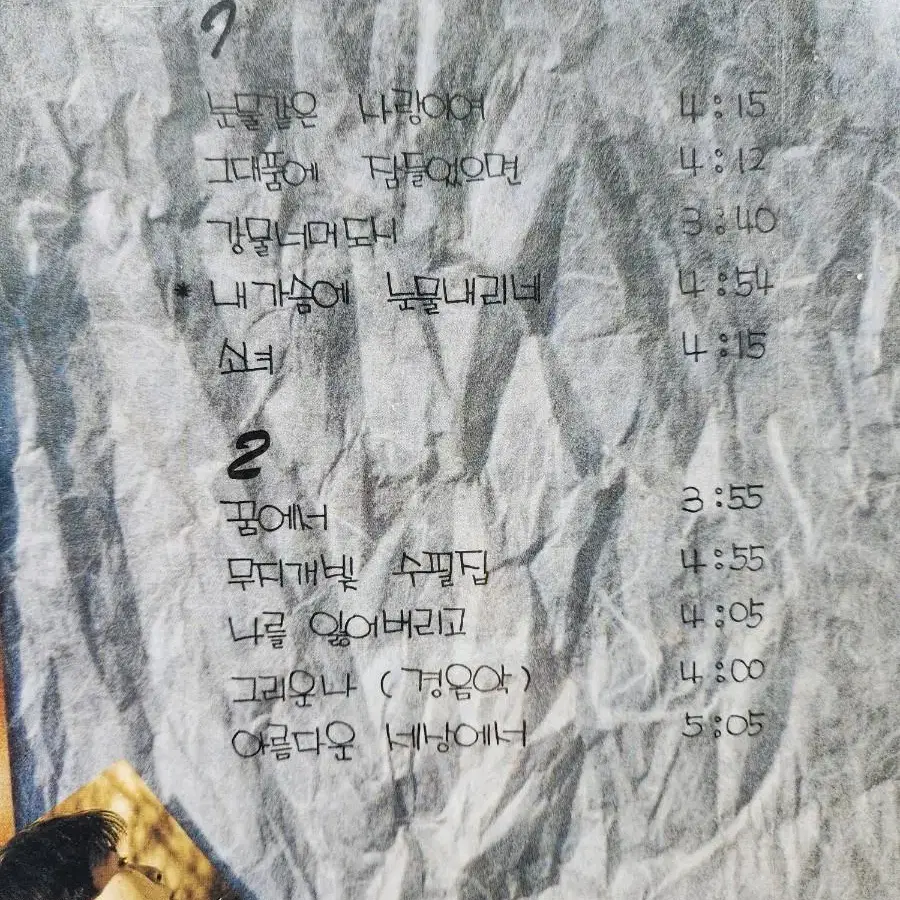 1
눈물같은 사랑이여 4:15
그대품에 잠들었으면 4:12
강물너머 도시 3:40
* 내가슴에 눈물내리네 4:54
소녀 4:15
2
꿈에서 3:55
무지개빛 수필집 4:55
나를 잃어버리고 4:05
그리운나 (경음악) 4:00
아름다운 세상에서 5:05